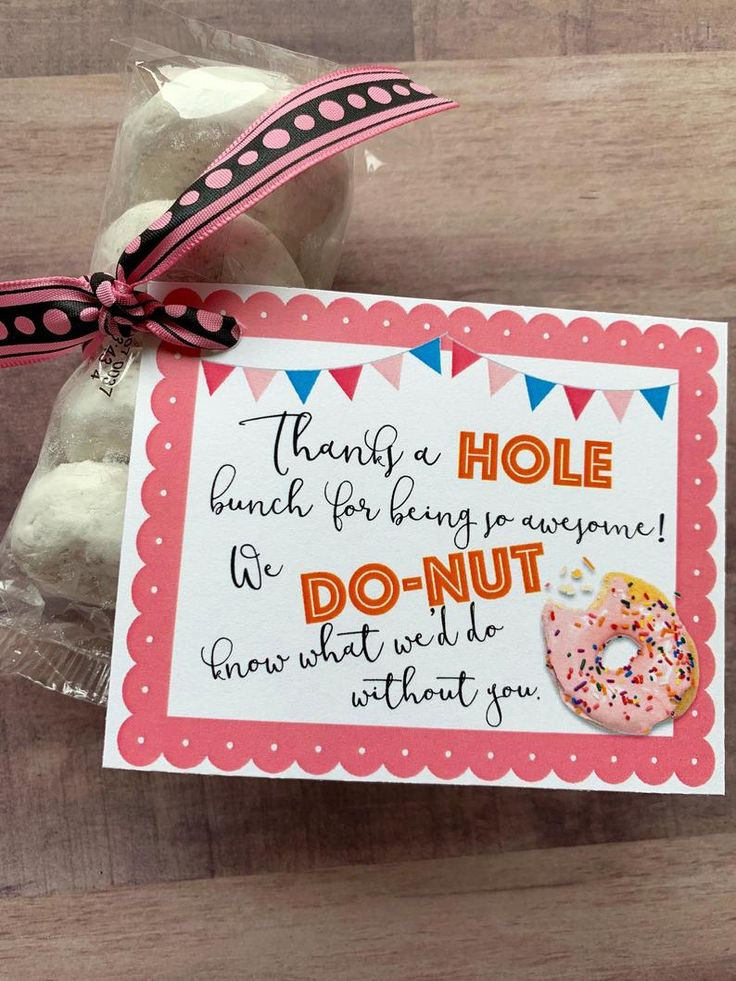 Thanks a HOLE
bunch for being so awesome!
We DO-NUT
know what we'd do
without you.